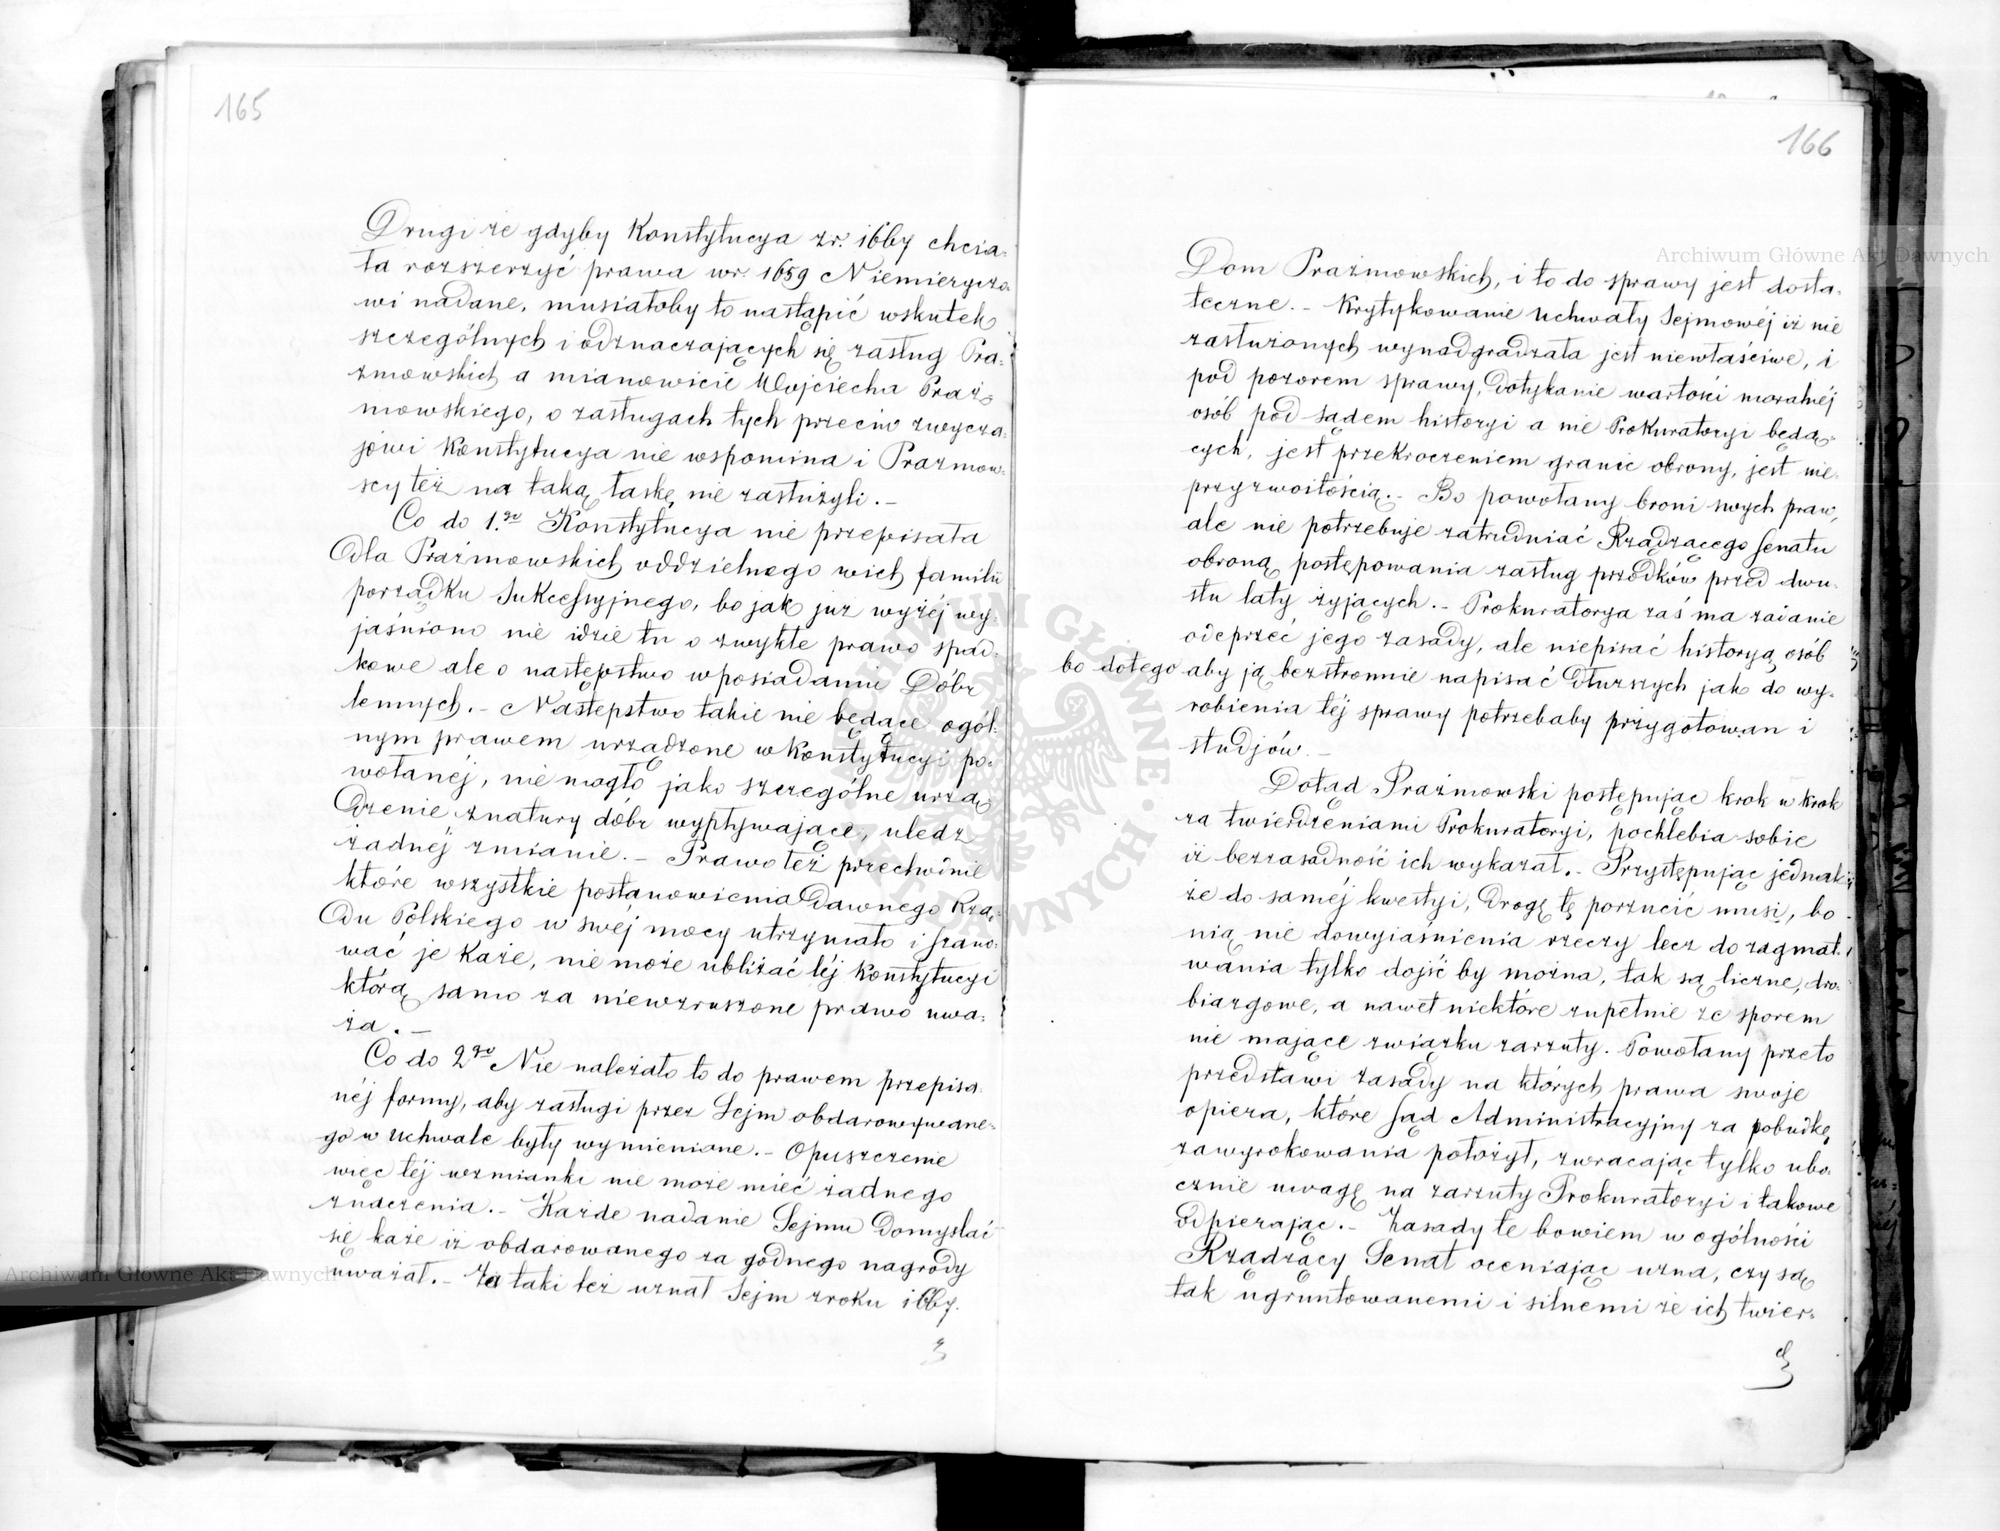 165
Drugi że gdyby Konstytucya z r. 1667 chcia-
ła rozszerzyć prawa w r. 1659 Niemieryczo-
wi nadane, musiałoby to nastąpić wskutek
szczególnych i odznaczających się zasług Pra-
zmowskich a mianowicie Wojciecha Praż-
mowskiego, o zasługach tych przeciw zwycza-
jowi Konstytucya nie wspomina i Prazmow-
scy też na taką łaskę nie zasłużyli. -
Co do 1.go Konstytucya nie przepisała
dla Prażmowskich oddzielnego w ich familii
porządku Sukcessyjnego, bo jak już wyżéj wy-
jaśniono nie idzie tu o zwykłe prawo spad-
kowe ale o następstwo w posiadaniu Dóbr
lennych. - Następstwo takie nie będące ogól-
nym prawem urządzone w Konstytucyi po-
wołanéj, nie mogło jako szczególne urzą-
dzenie z natury dóbr wypływające, uledz
żadnéj zmianie. - Prawo też przechodnie
które wszystkie postanowienia dawnego Rzą-
du Polskiego w swéj mocy utrzymało i szano-
wać je każe, nie może ubliżać téj Konstytucyi
którą samo za niewzruszone prawo uwa-
ża. -
Co do 2go Nie należało to do prawem przepisa-
néj formy, aby zasługi przez Sejm obdarowywane-
go w Uchwale były wymienione. - Opuszczenie
więc téj wzmianki nie może mieć żadnego
znaczenia. - Każde nadanie Sejmu Domyślać
się każe iż obdarowanego za godnego nagrody
uważał. - Za taki też uznał Sejm z roku 1667.
166
Dom Prażmowskich, i to do sprawy jest dosta-
teczne. - Krytykowanie Uchwały Sejmowéj iż nie
zasłużonych wynadgradzała jest niewłaściwe, i
pod pozorem sprawy, dotykanie wartości moralnéj
osób pod sądem historyi a nie Prokuratoryi będą-
cych, jest przekroczeniem granic obrony, jest nie-
przyzwoitością. - Bo powołany broni swych praw,
ale nie potrzebuje zatrudniać Rządzącego Senatu
obroną postępowania zasług przodków przed dwu-
stu laty żyjących. - Prokuratorya zaś ma zaianie
odeprzeć jego zasady, ale niepisać historyą osób
bo dotego aby ją bezstronnie napisać dłuższych jak do wy-
robienia téj sprawy potrzebaby przygotowan i
studjów. -
Dotąd Prażmowski postępując krok w krok
za twierdzeniami Prokuratoryi, pochlebia sobie
iż bezzasadność ich wykazał. - Przystępując jednak-
że do saméj kwestyi, drogę tę porzucić musi, bo
nią nie dowyiaśnienia rzeczy lecz do zagmat-
wania tylko dojść by można, tak są liczne, dro-
biazgowe, a nawet niektóre zupełnie ze sporem
nie mające związku zarzuty. Powołany przeto
przedstawi zasady na których prawa swoje
opiera, które Sąd Administracyjny za pobudkę
zawyrokowania położył, zwracając tylko ubo-
cznie uwagę na zarzuty Prokuratoryi i takowe
odpierając. - Zasady te bowiem w ogólności
Rządzący Senat oceniając uzna, czy są
tak ugruntowanemi i silnemi że ich twier-